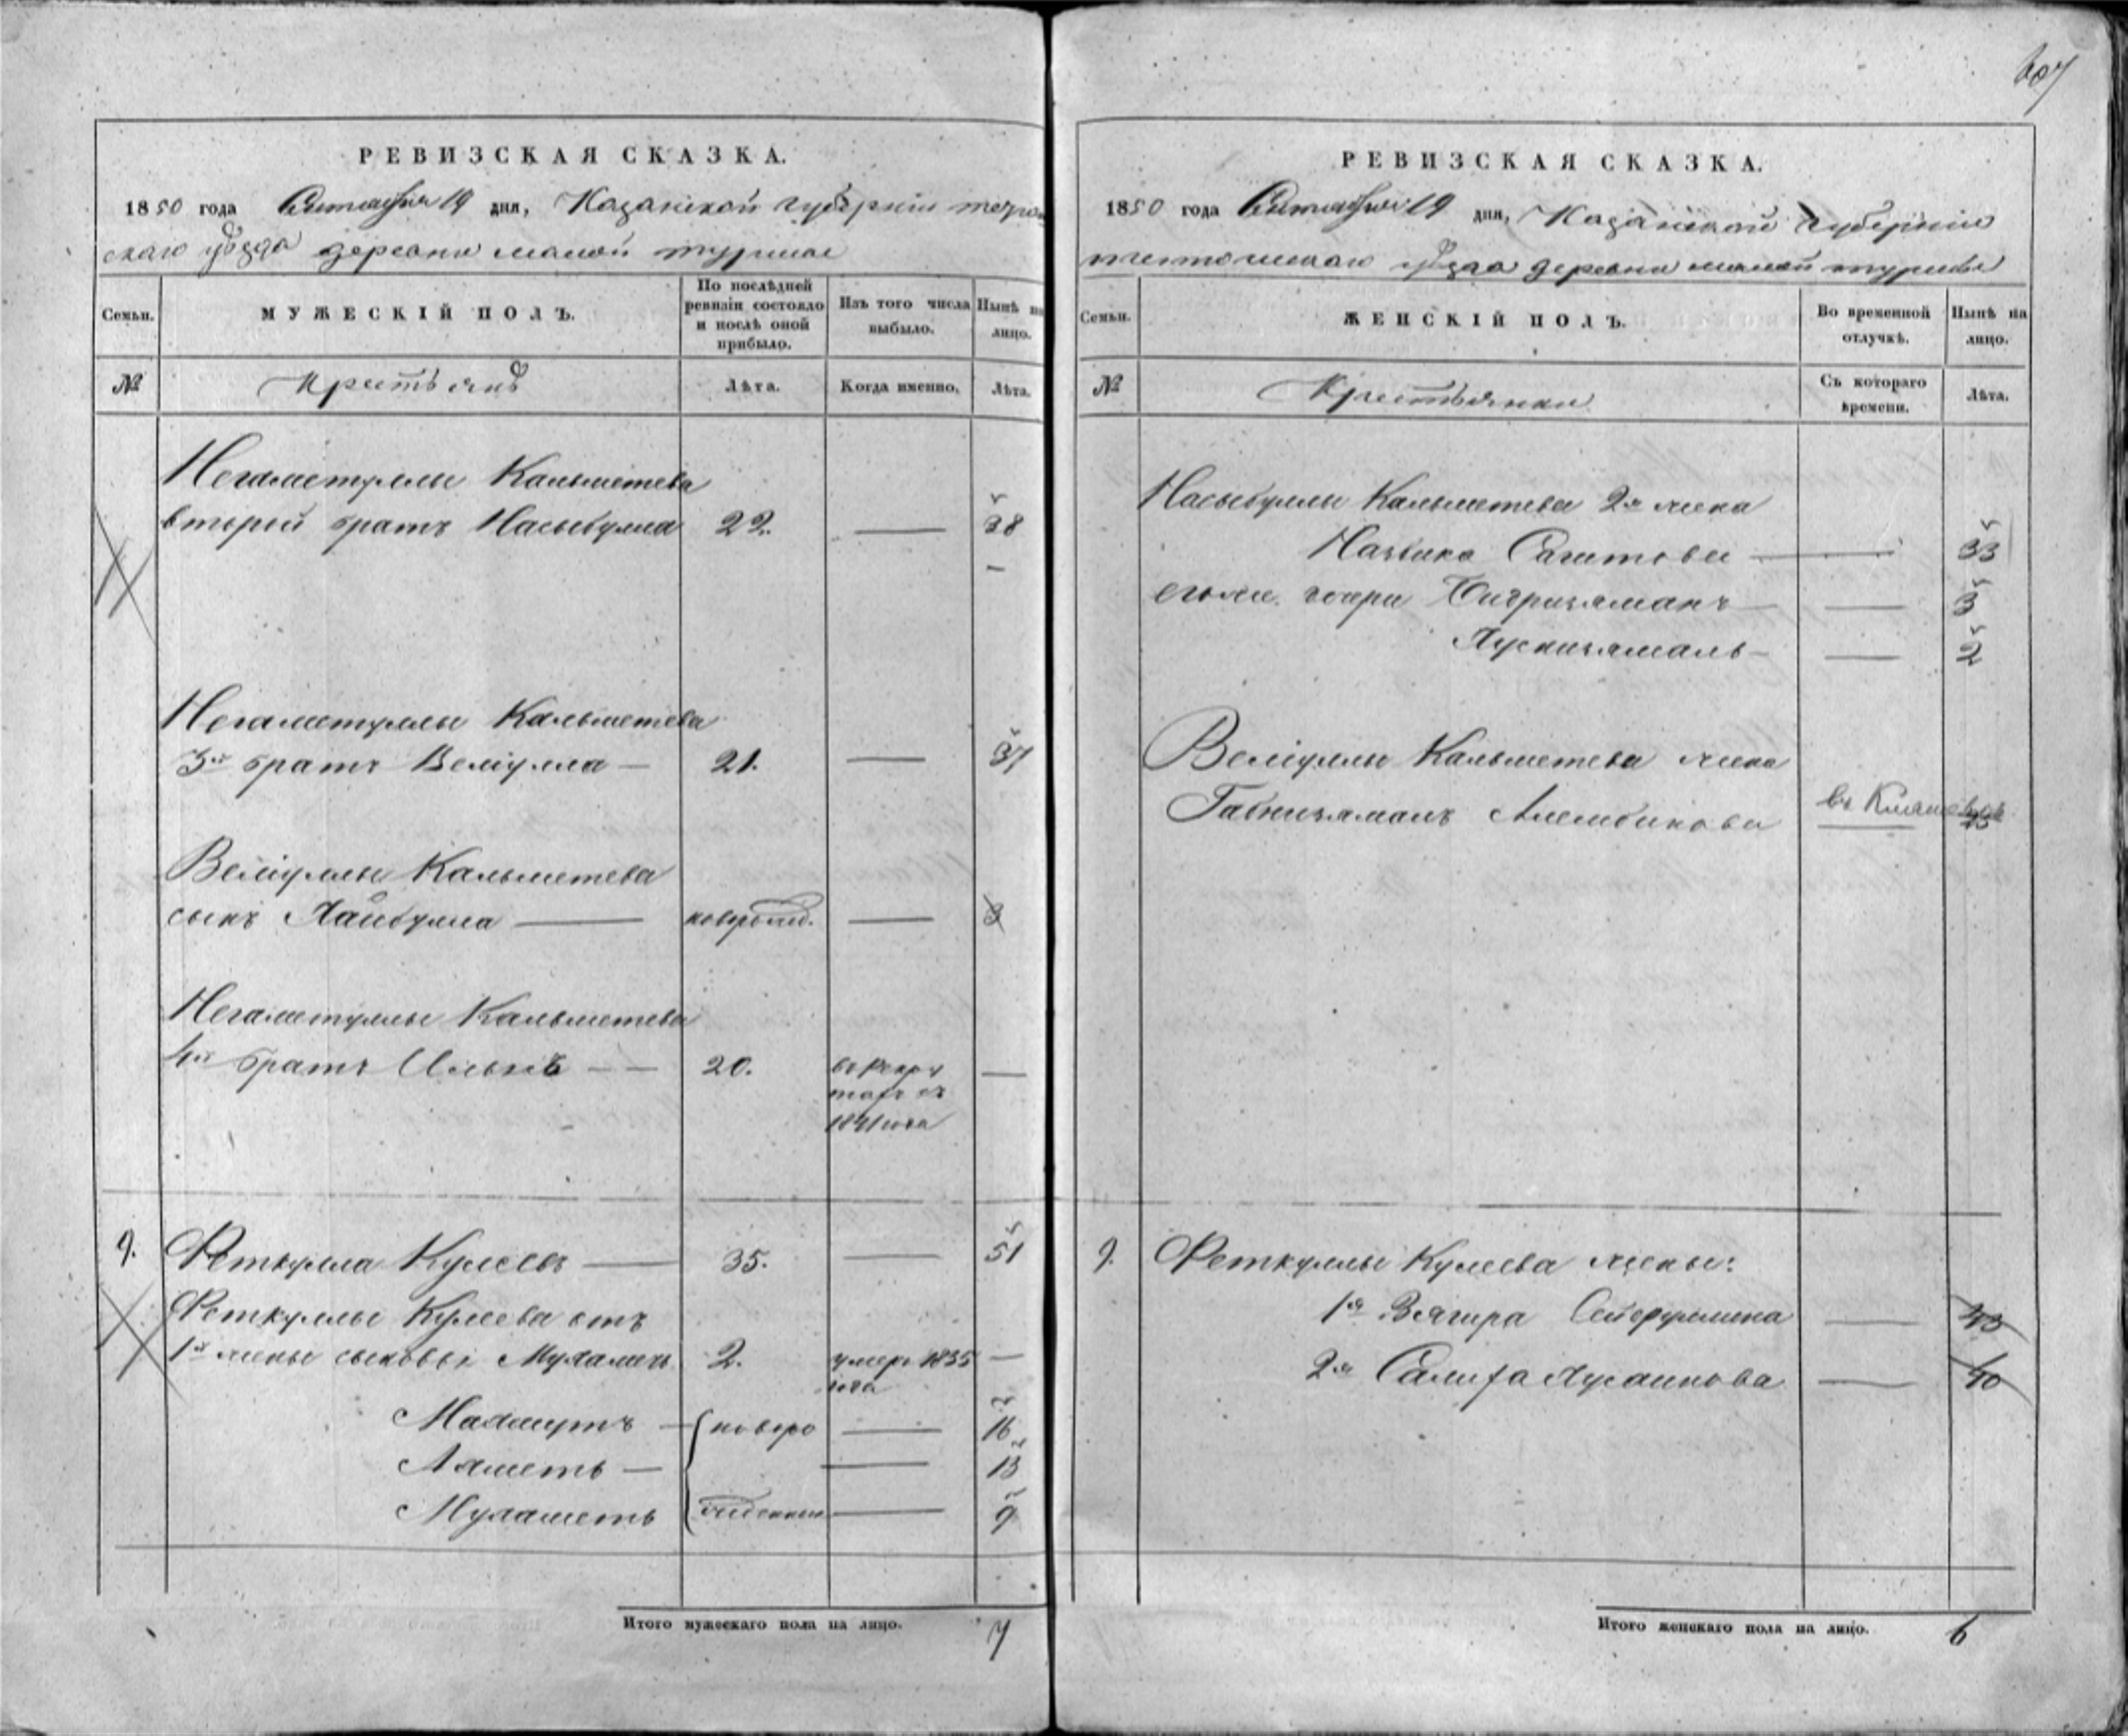 607
РЕВИЗСКАЯ СКАЗКА.
1850 года Сентября 19 дня, Казанской губерніи
скаго уѣзда деревни малой турмы
Семьи. МУЖЕСКІЙ ПОЛЪ. По послѣдней ревизіи состояло и послѣ оной прибыло. Изъ того числа выбыло. Нынѣ на лицо.
№ Крестьянъ Лѣта. Когда именно. Лѣта.
Негаметуллы Кальметева
второй братъ Насыбулла 22. — 38
Негаметуллы Кальметева
3й братъ Веліулла — 21. — 37
Веліуллы Кальметева
сынъ Хайбулла — новорожд. — 3
Негаметуллы Кальметева
4й братъ — — 20. въ рекрутахъ съ 1841 года —
9. Феткулла Кулеевъ — 35. — 51
Феткуллы Кулеева отъ
1й жены сыновья 2. умеръ 1835 года —
Махмутъ — ново­ро — 16
Ахметь — — 13
Мухаметь жденныи — 9
Итого мужескаго пола на лицо. 7
РЕВИЗСКАЯ СКАЗКА.
1850 года Сентября 19 дня, Казанской губерніи
уѣзда деревни малой турмы
Семьи. ЖЕНСКІЙ ПОЛЪ. Во временной отлучкѣ. Нынѣ на лицо.
№ Крестьянки Съ котораго времени. Лѣта.
Насыбуллы Кальметева 2я жена
Сагитова — 33
дочери — 3
— 2
Веліуллы Кальметева жена
Габнизямалъ въ
9. Феткуллы Кулеева жены:
1я Зягира — 43
2я Хусаинова — 40
Итого женскаго пола на лицо. 6